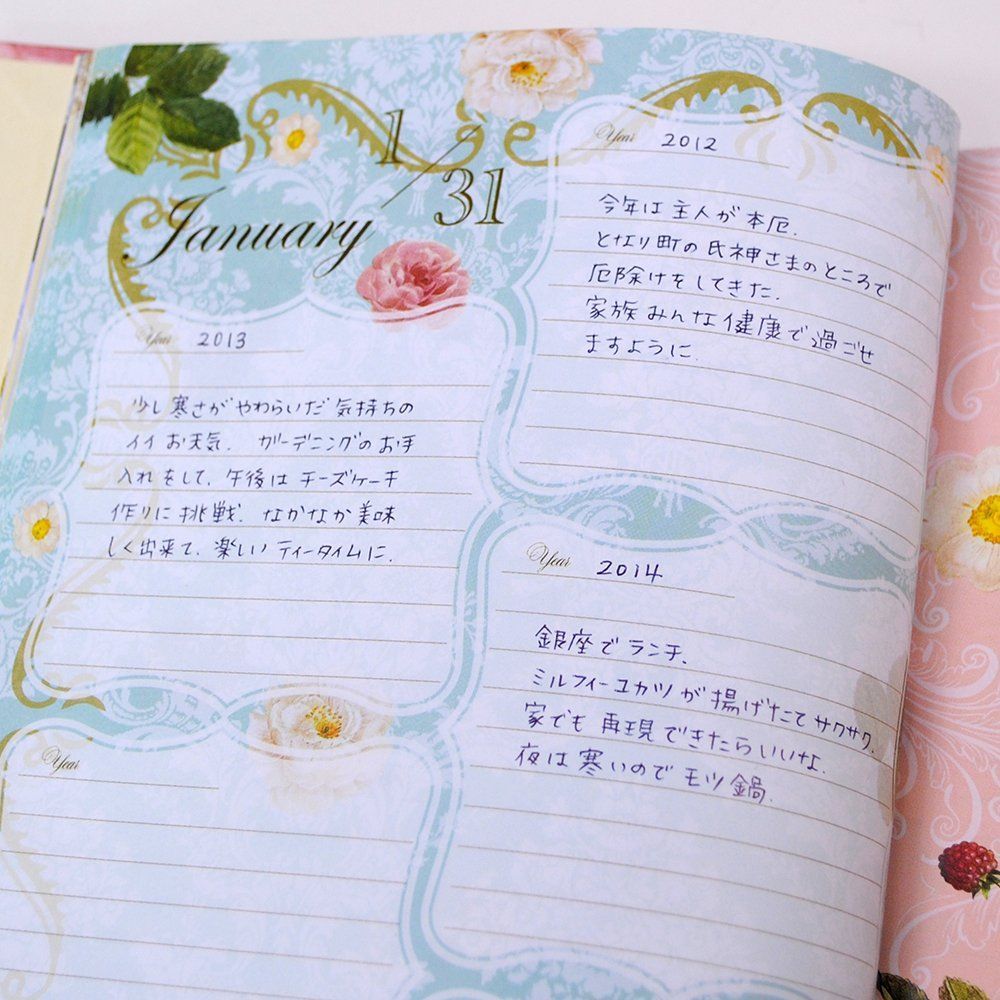 1/31
January
Year 2012
今年は主人が本厄.
となり町の氏神さまのところで
厄除けをしてきた.
家族みんな健康で過ごせ
ますように.
Year 2013
少し寒さがやわらいだ気持ちの
イイお天気. ガーデニングのお手
入れをして、午後はチーズケーキ
作りに挑戦. なかなか美味
しく出来て、楽しいティータイムに.
Year 2014
銀座でランチ、
ミルフィーユカツが揚げたてサクサク.
家でも再現できたらいいな.
夜は寒いのでモツ鍋.
Year